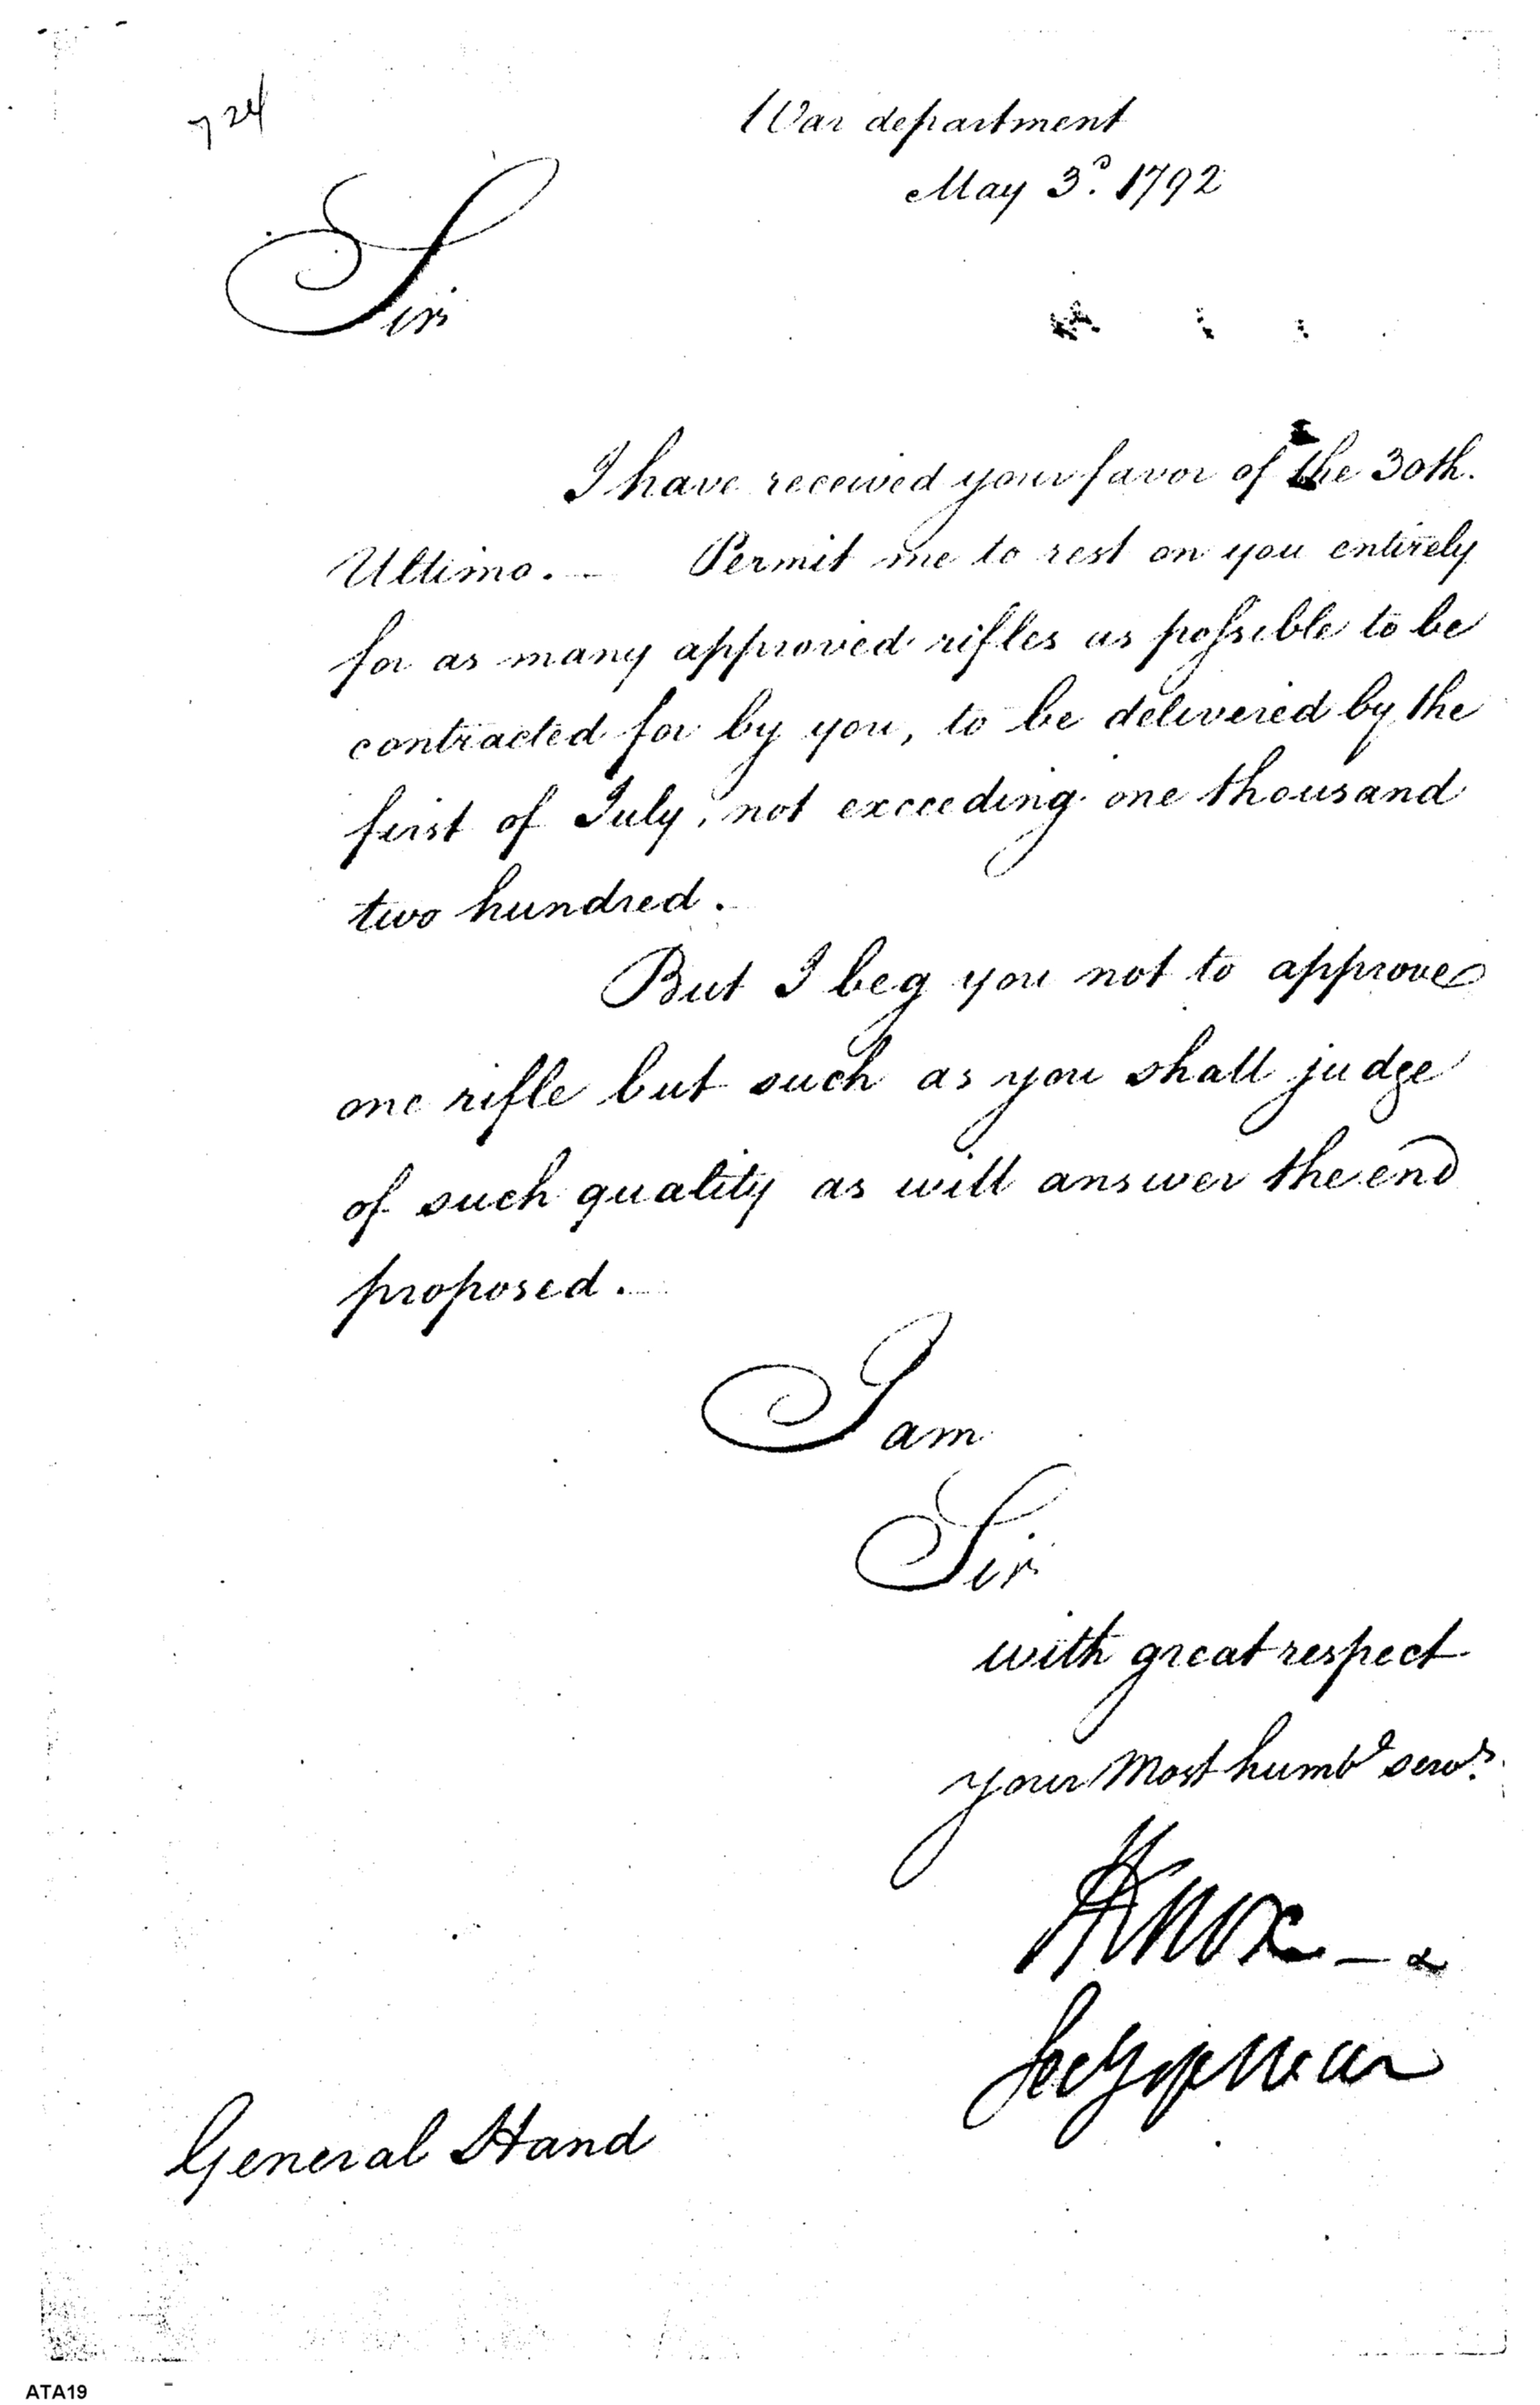 724
War department
May 3d. 1792
Sir
I have received your favor of the 30th.
Ultimo. — Permit me to rest on you entirely
for as many approved rifles as possible to be
contracted for by you, to be delivered by the
first of July, not exceeding one thousand
two hundred.
But I beg you not to approve
one rifle but such as you shall judge
of such quality as will answer the end
proposed.
I am
Sir
with great respect
your most humbe servt.
HKnox
Secy of War
General Hand
ATA19